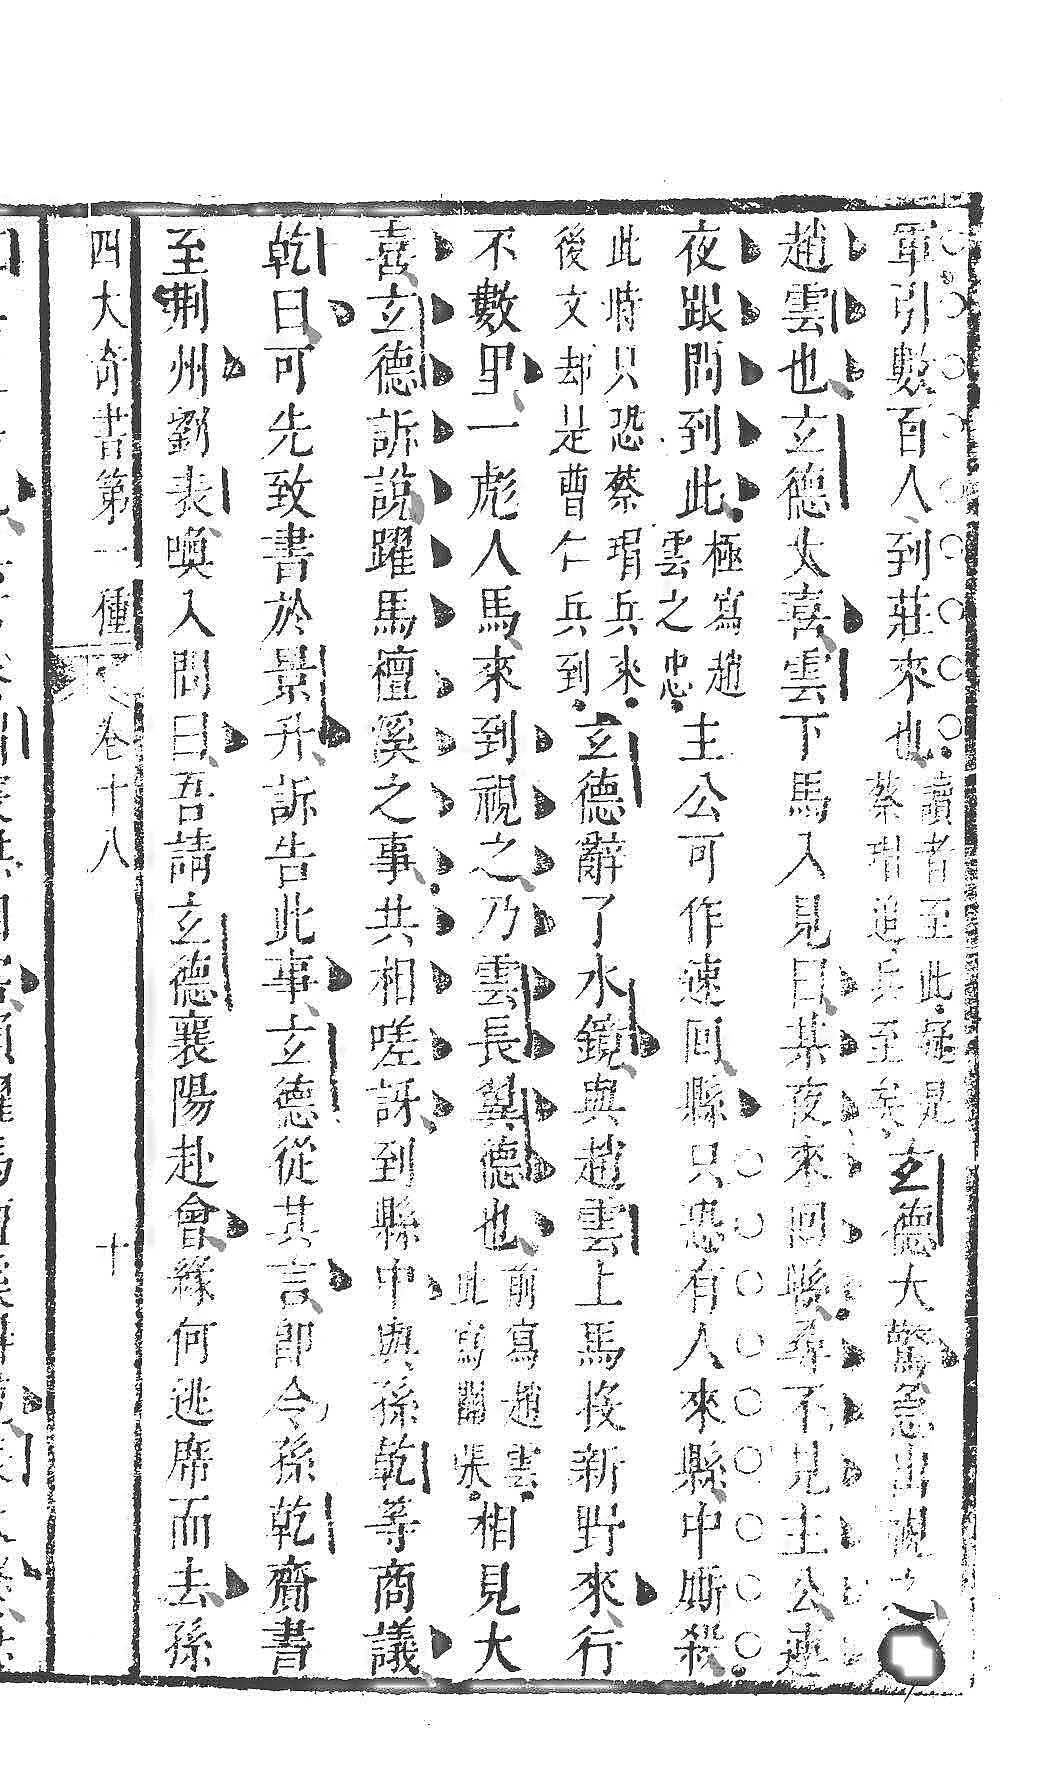 軍引數百人到莊來也讀者至此疑是蔡瑁追兵至矣玄德大驚急出視之
趙雲也玄德大喜雲下馬入見曰某夜來回縣尋不見主公連
夜跟問到此極寫趙雲之忠主公可作速回縣只恐有人來縣中厮殺
此時只恐蔡瑁兵來後文却是曹仁兵到玄德辭了水鏡與趙雲上馬投新野來行
不數里一彪人馬來到視之乃雲長翼德也前寫趙雲此寫關張相見大
喜玄德訴說躍馬檀溪之事共相嗟訝到縣中與孫乾等商議
乾曰可先致書於景升訴告此事玄德從其言即令孫乾齎書
至荆州劉表喚入問曰吾請玄德襄陽赴會緣何逃席而去孫
四大奇書第一種 卷十八 十